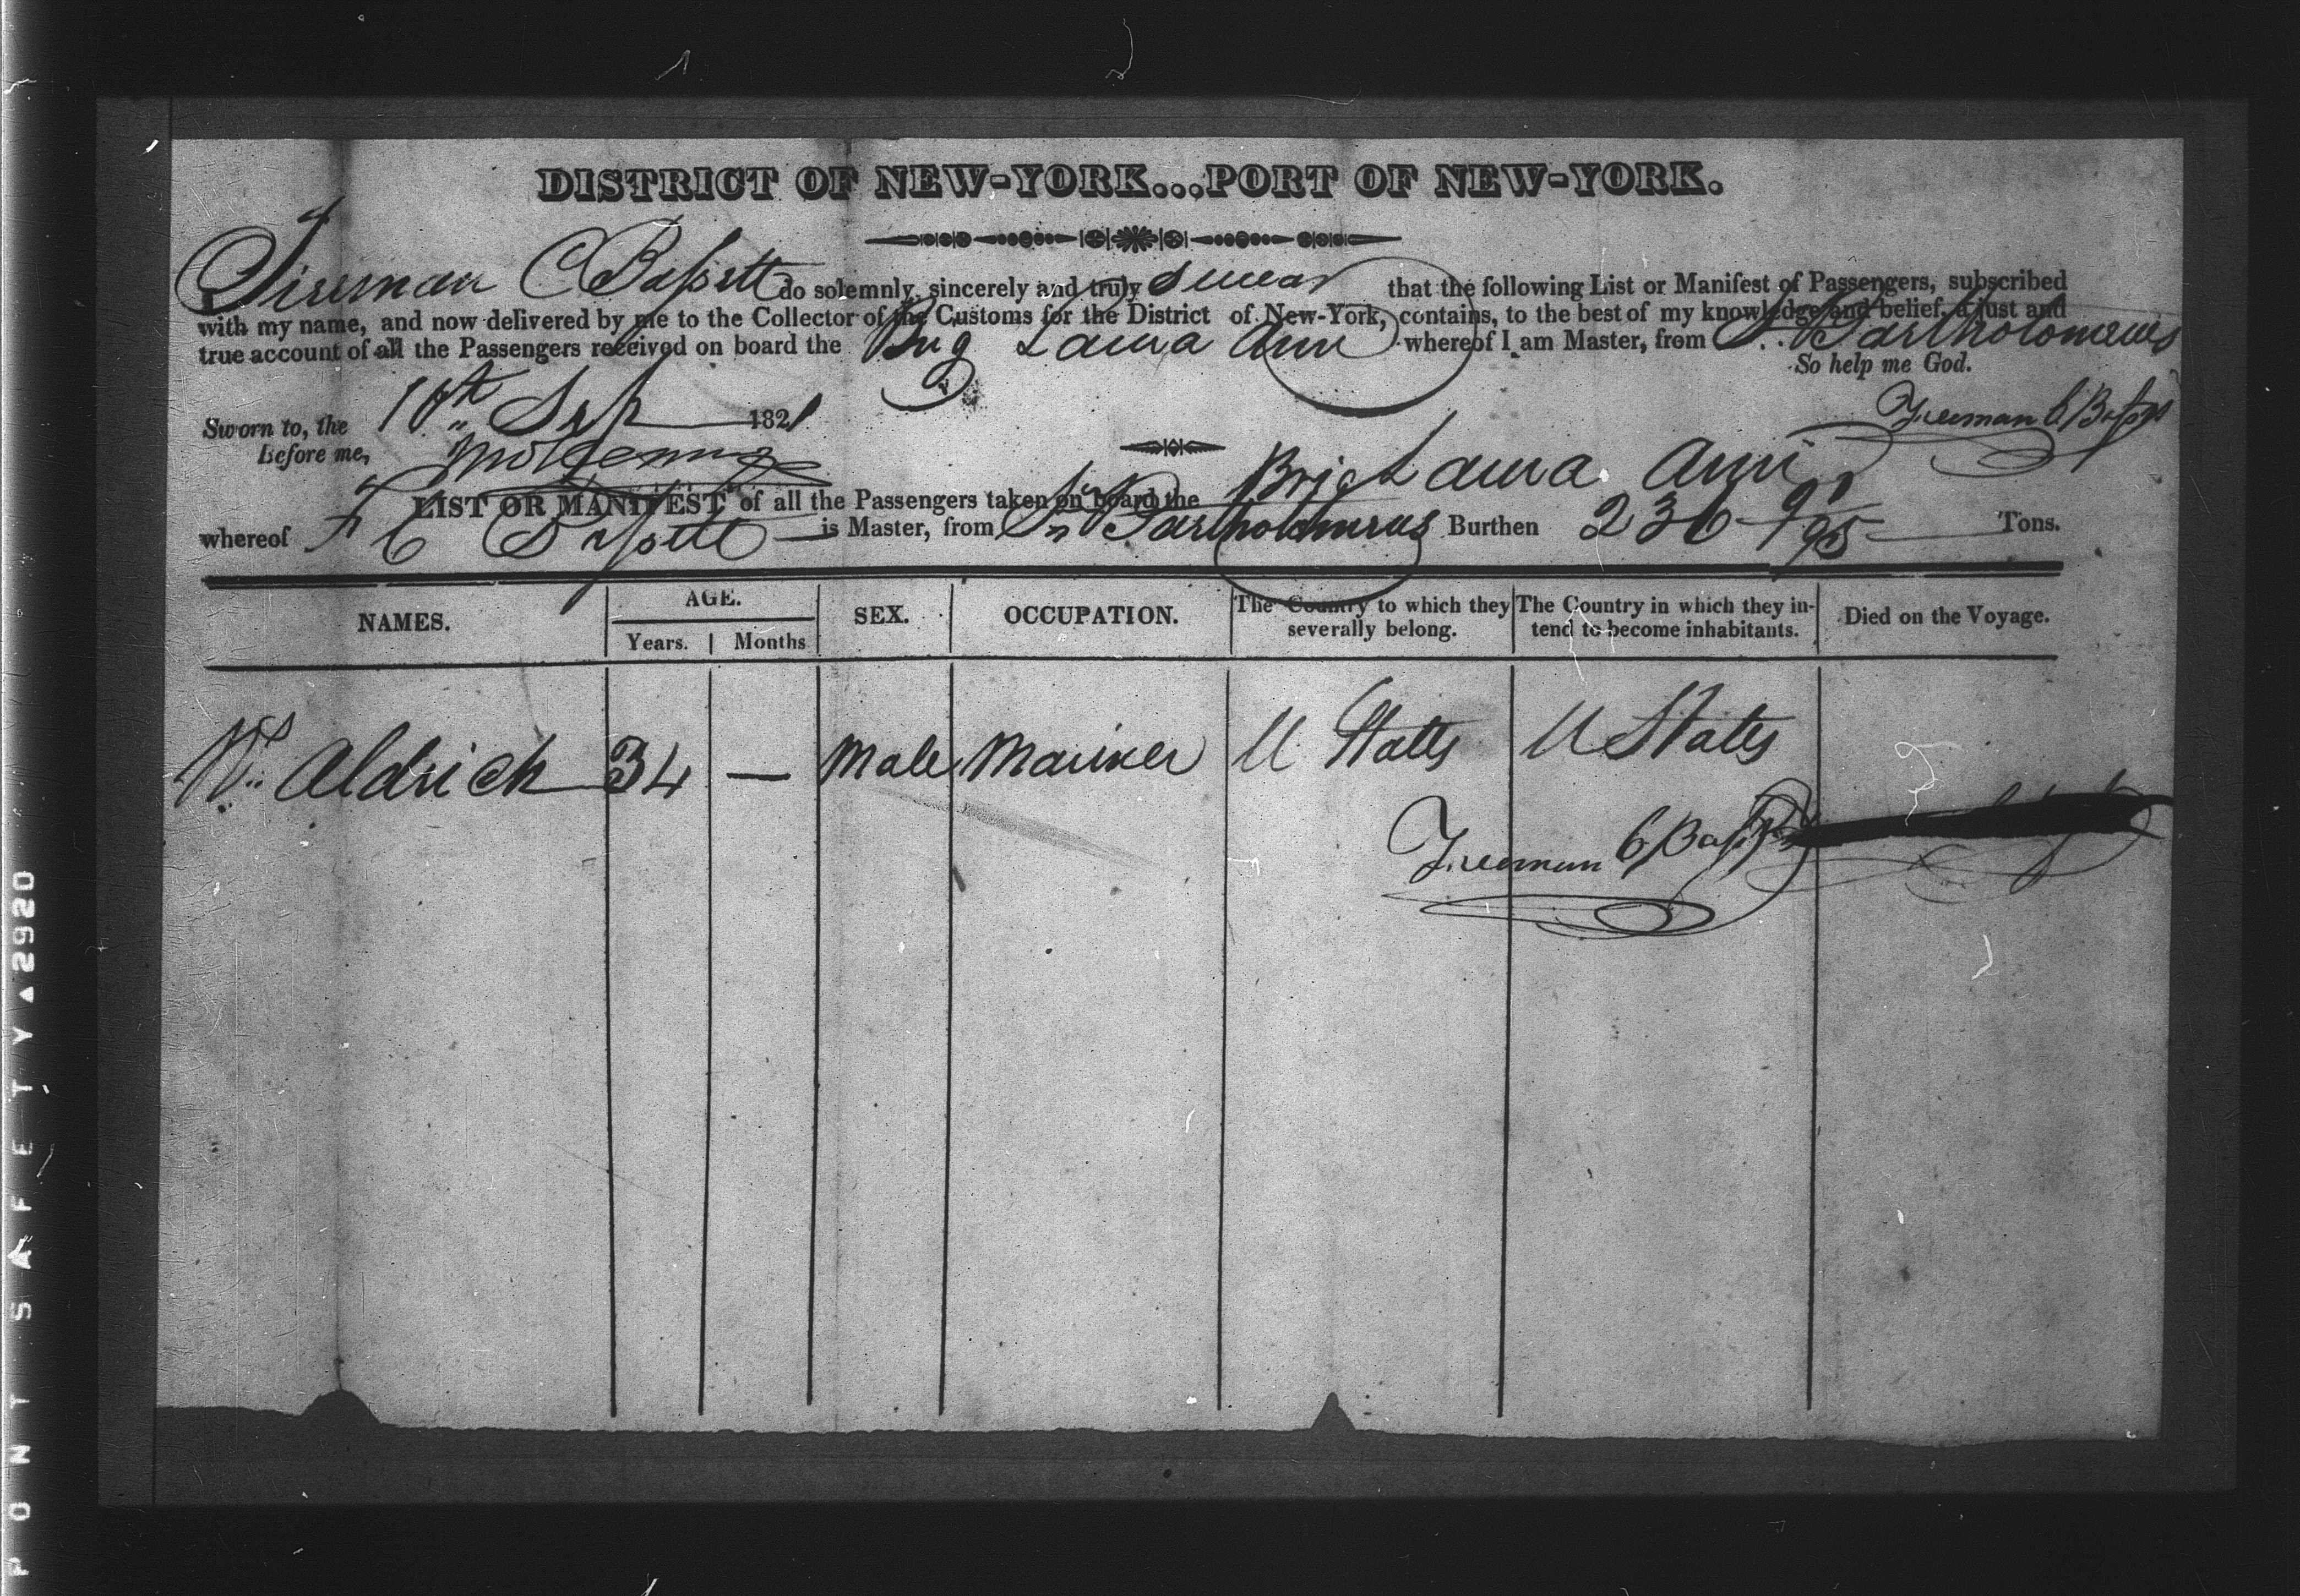 DISTRICT OF NEW-YORK...PORT OF NEW-YORK.
Freeman C Bassett do solemnly, sincerely and truly swear that the following List or Manifest of Passengers, subscribed
with my name, and now delivered by me to the Collector of the Customs for the District of New-York, contains, to the best of my knowledge and belief, a just and
true account of all the Passengers received on board the Brig Laura Ann whereof I am Master, from St. Bartholomews
So help me God.
Sworn to, the 10th Sep 1821
Freeman C Bassett
Before me,
LIST OR MANIFEST of all the Passengers taken on board the Brig Laura Ann
whereof F C Bassett is Master, from St Bartholomews Burthen 236 91/95 Tons.
NAMES. AGE. SEX. OCCUPATION. The Country to which they severally belong. The Country in which they intend to become inhabitants. Died on the Voyage.
Years. Months
Wm Aldrich 34 — Male Mariner U States U States
Freeman C Bassett
PONT SAFETY ▲ 2920